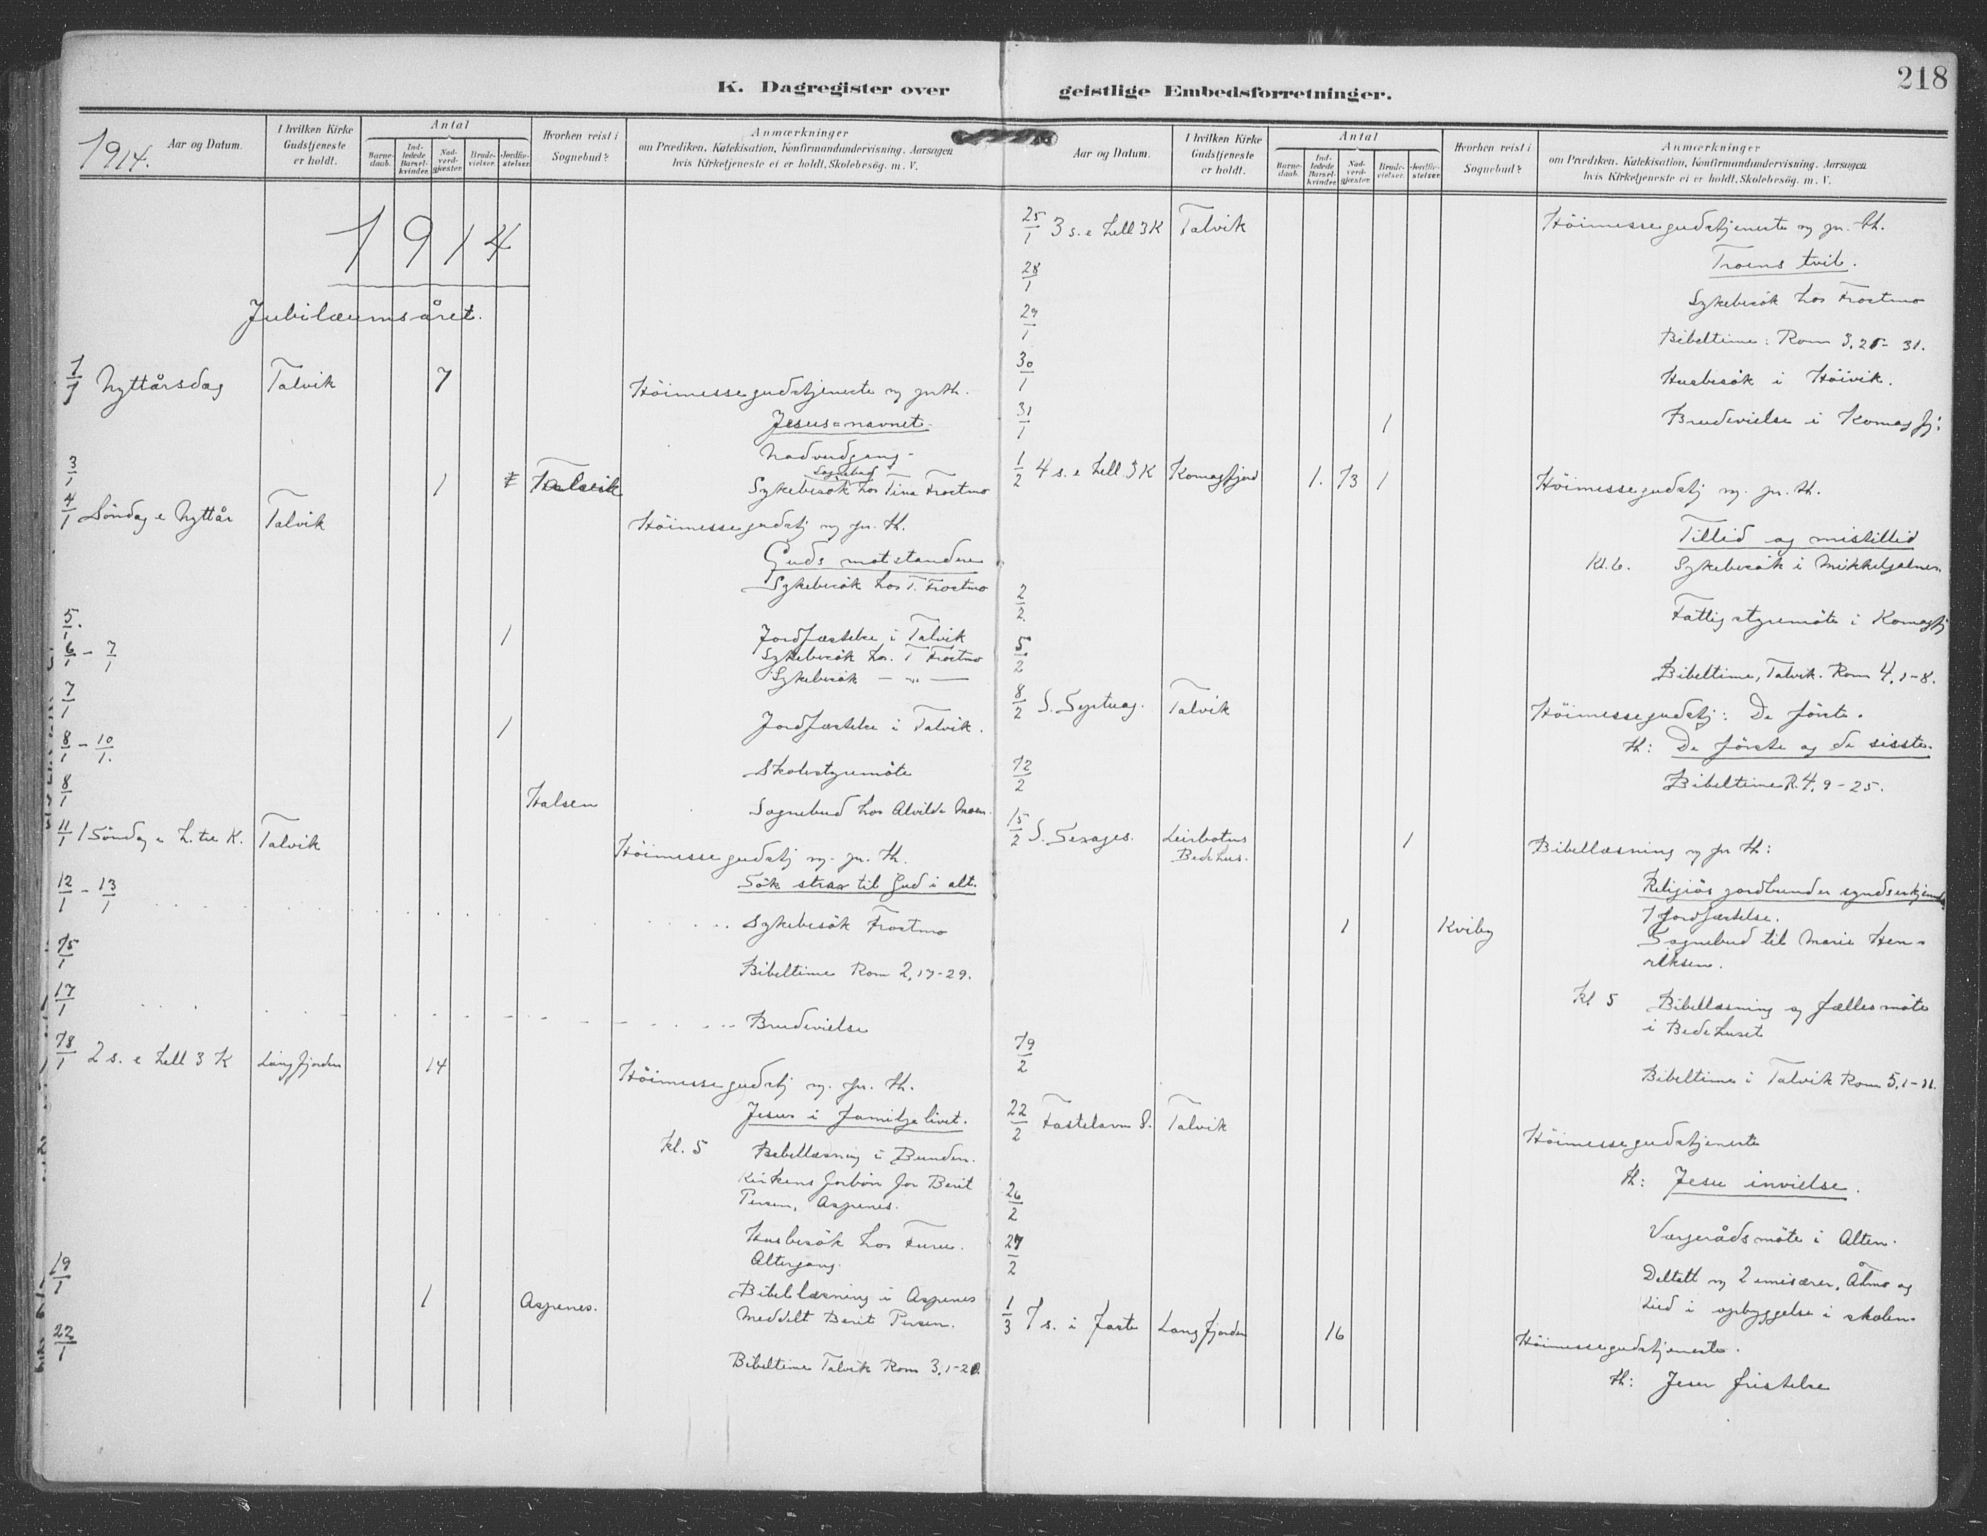 218
K. Dagregister over geistlige Embedsforretninger.
1914.
Aar og Datum. I hvilken Kirke Gudstjeneste er holdt. Antal Barnedaab. Indledede Barselkvinder. Nadverdgjester. Brudevielser. Jordfæstelser. Hvorhen reist i Sognebud? Anmærkninger
om Prædiken, Katekisation, Konfirmandundervisning. Aarsagen
hvis Kirketjeneste ei er holdt, Skolebesøg. m. V.
1914
Jubilæumsåret.
1/1 Nyttårsdag Talvik 7 Höimessegudstjeneste og pr. th.
Jesus-navnet.
Nadverdgang.
Sognebud
3/1 1 Talvik Sykebesök hos Tina Frostmo
4/1 Söndag e Nyttår Talvik Höimessegudstj og pr. th.
Guds motstandere
Sykebesök hos T. Frostmo
5/1 1 Jordfæstelse i Talvik
6/1 - 7/1 Sykebesök hos T Frostmo
Sykebesök — " —
7/1 1 Jordfæstelse i Talvik.
8/1 - 10/1. Skolestyremöte
8/1 Halsen Sognebud hos Alvilde Moen.
11/1 1 Söndag e H. tre K. Talvik Höimessegudstj og pr. th.
Sök strax til Gud i alt.
12/1 - 13/1 Sykebesök Frostmo
15/1 Bibeltime Rom 2, 17-29.
17/1 Brudevielse
18/1 2 s. e hell 3 K Langfjorden 14 Höimessegudstj og pr. th.
Jesus i familjelivet.
Kl. 5 Bibellæsning i Bunden.
Kirkens forbön for Berit
Persen, Aspenes.
Husbesök hos Furu.
Altergang.
19/1 1 Aspenes. Bibellæsning i Aspenes
Meddelt Berit Persen.
22/1 Bibeltime Talvik Rom 3, 1-20.
Aar og Datum. I hvilken Kirke Gudstjeneste er holdt. Antal Barnedaab. Indledede Barselkvinder. Nadverdgjester. Brudevielser. Jordfæstelser. Hvorhen reist i Sognebud? Anmærkninger
om Prædiken, Katekisation, Konfirmandundervisning. Aarsagen
hvis Kirketjeneste ei er holdt, Skolebesög. m. V.
25/1 3 s. e hell 3K Talvik Höimessegudstjeneste og pr. th.
Troens tvil.
28/1 Sykebesök hos Frostmo
29/1 Bibeltime: Rom 3, 21-31.
30/1 Husbesök i Höivik.
31/1 1 Brudevielse i Komagfj:
1/2 4 s. e hell 3 K Komagfjord 1. 13 1 Höimessegudstj og pr. th.
Tillid og mistillid
Kl. 6. Sykebesök i Mikkeljolnes.
2/2. Fattigstyremöte i Komagfj
5/2 Bibeltime, Talvik. Rom 4, 1-8.
8/2 S. Septuag. Talvik Höimessegudstj: De förste.
th: De förste og de sisste.
12/2 Bibeltime R. 4, 9-25.
15/2 S. Sexages. Leirbotns 1 Bibellæsning og pr th:
Bedehus.
Religiös jordbunden
1 Jordfæstelse.
1 Kviby Sognebud til Marie Hen-
riksen.
Kl 5 Bibellæsning og fællesmöte
i Bedehuset
19/2 Bibeltime i Talvik Rom 5, 1-11.
22/2 Fastelavns S. Talvik Höimessegudstjeneste
th: Jesu invielse.
26/2 Vergerådsmöte i Alten.
27/2 Deltatt og 2 emisærer, Åhmo og
Lied i opbyggelse i skolen.
1/3 1 s. i faste Langfjorden 16 Höimessegudstjeneste.
th: Jesu fristelse